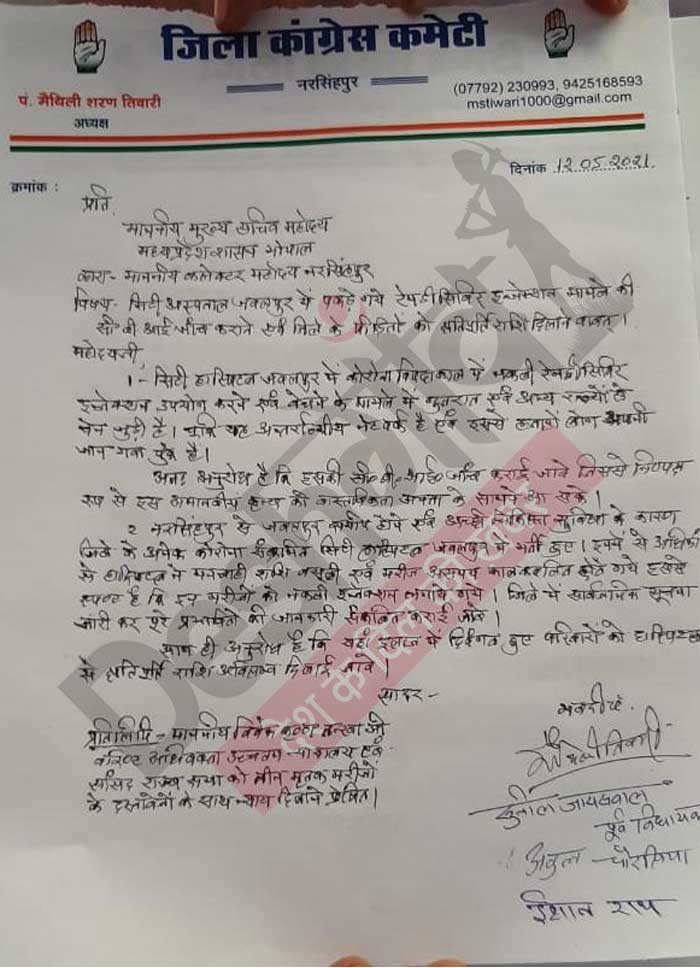 जिला कांग्रेस कमेटी
नरसिंहपुर
(07792) 230993, 9425168593
mstiwari1000@gmail.com
पं. मैथिली शरण तिवारी
अध्यक्ष
दिनांक 12.05.2021
क्रमांक :
प्रति,
माननीय मुख्य सचिव महोदय
मध्यप्रदेश शासन भोपाल
द्वारा- माननीय कलेक्टर महोदय नरसिंहपुर
विषय- सिटी अस्पताल जबलपुर में पकड़े गये रेमडीसिविर इन्जेक्शन मामले की
सी बी आई जाँच कराने एवं जिले के पीड़ितों को क्षतिपूर्ति राशि दिलाने वाबत।
महोदयजी,
1.- सिटी हास्पिटल जबलपुर में कोरोना विपदाकाल में नकली रेमडीसिविर
इन्जेक्शन उपयोग करने एवं बेचने के मामले में गुजरात एवं अन्य राज्यों से
चेन जुड़ी है। चूंकि यह अन्तर्राज्यीय नेटवर्क है एवं इससे हजारों लोग अपनी
जान गवा चुके है।
अतः अनुरोध है कि इसकी सी॰बी॰आई॰ जाँच कराई जावे जिससे निष्पक्ष
रूप से इस अमानवीय कृत्य की वास्तविकता जनता के सामने आ सके।
2 नरसिंहपुर से जबलपुर समीप होने एवं अच्छी चिकित्सा सुविधा के कारण
जिले के अनेक कोरोना संक्रमित सिटी हास्पिटल जबलपुर में भर्ती हुए। इनमें से अधिकांश
से हास्पिटल ने मनचाही राशि वसूली एवं मरीज असमय कालकवलित होते गये इससे
स्पष्ट है कि इन मरीजों को नकली इन्जेक्शन लगाये गये। जिले में सार्वजनिक सूचना
जारी कर पूरे प्रभावितों की जानकारी संकलित कराई जावे।
साथ ही अनुरोध है कि वहा इलाज में दिवंगत हुए परिवारों को हास्पिटल
से क्षतिपूर्ति राशि अविलम्ब दिलाई जावे।
सादर -
प्रतिलिपि - माननीय विवेक कृष्ण तन्खा जी
वरिष्ठ अधिवक्ता उच्चतम न्यायालय एवं
सांसद राज्य सभा को तीन मृतक मरीजों
के दस्तावेजों के साथ न्याय दिलाने प्रेषित।
भवदीय
तिवारी
सुनील जायसवाल
पूर्व विधायक
अतुल चौरसिया
ईशान राय
Deshgaon
देश के दिल की खबरें